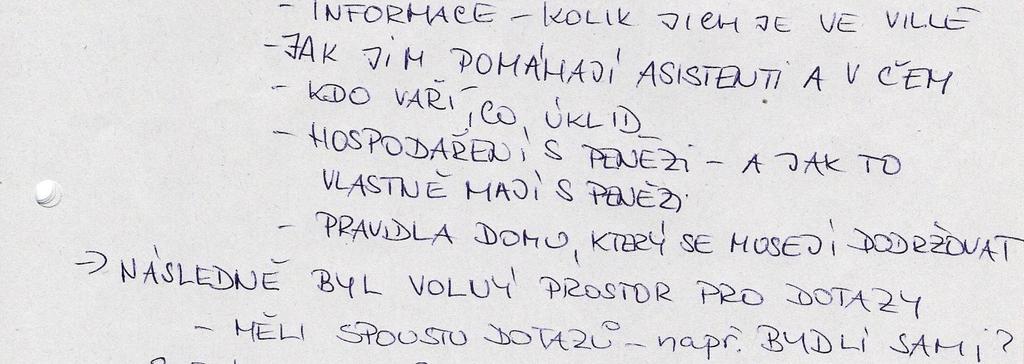 - INFORMACE - KOLIK JICH JE VE VILLE
- JAK JIM POMÁHAJÍ ASISTENTI A V ČEM
- KDO VAŘÍ, CO, ÚKLID
- HOSPODAŘENÍ S PENĚZI - A JAK TO
VLASTNĚ MAJÍ S PENĚZI
- PRAVIDLA DOMU, KTERÝ SE MUSEJÍ DODRŽOVAT
→ NÁSLEDNĚ BYL VOLNÝ PROSTOR PRO DOTAZY
- MĚLI SPOUSTU DOTAZŮ - např. BYDLÍ SAMI?